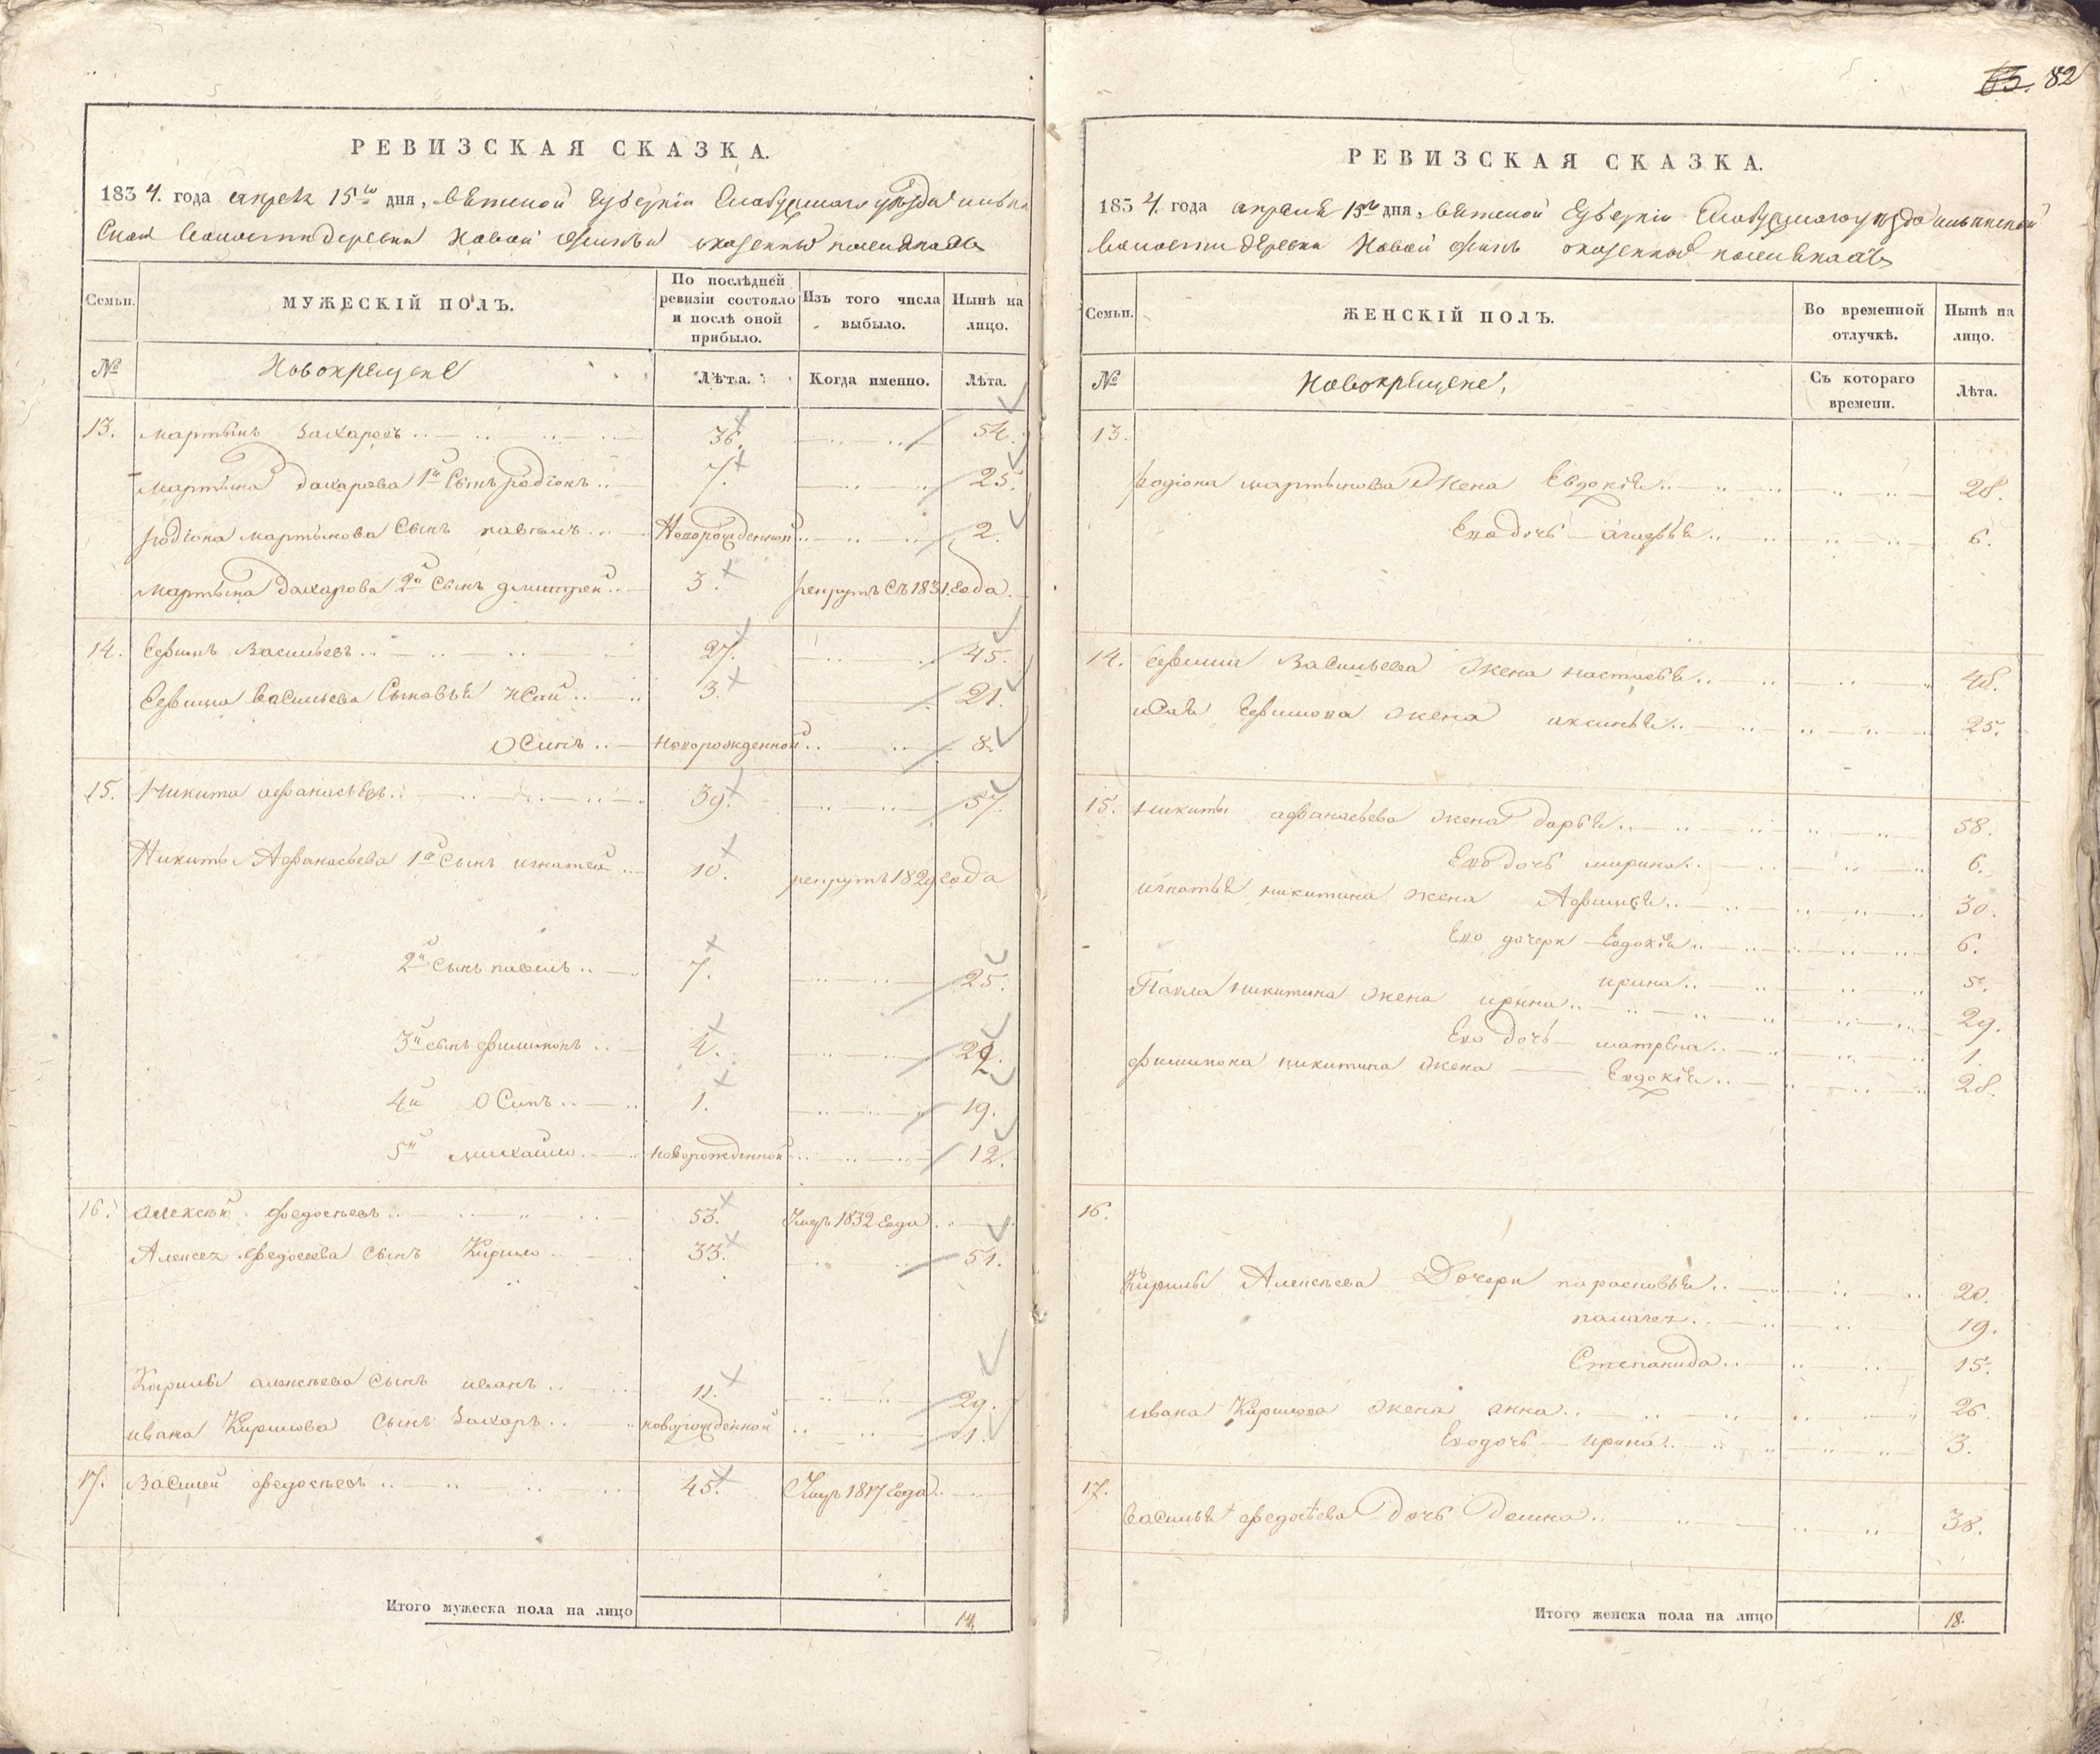 РЕВИЗСКАЯ СКАЗКА.
1834. года апреля 15го дня, Вятской Губернiи Елабужскаго уѣзда ильин
Ской Волости деревни Новой
Семьи.
МУЖЕСКIЙ ПОЛЪ.
По послѣдней ревизiи состояло и послѣ оной прибыло.
Изъ того числа выбыло.
Нынѣ на лицо.
№
Новокрещене
Лѣта.
Когда именно.
Лѣта.
13. Мартынъ Захаровъ 36. 54.
Мартына Захарова 1й Сынъ родiонъ 7. 25.
родiона мартынова Сынъ павелъ Новорожденной 2.
Мартына Захарова 2й Сынъ дмитрей 3. рекрутъ Съ 1831. года.
14. Ефимъ Васильевъ 27. 45.
Ефима Васильева Сыновья исай 3. 21.
Осипъ новорожденной 8.
15. Никита афанасьевъ 39. 57.
Никиты Афанасьева 1й Сынъ игнатей 10. рекрутъ 1829 года
2й Сынъ павелъ 7. 25.
3й сынъ филимонъ 4. 22.
4й Осипъ 1. 19.
5й михайло новорожденной 12.
16. алексѣй федосѣевъ 53. Умеръ 1832 года
Алексея Федосеева Сынъ Кирило 33. 51.
Кирилы алексѣева Сынъ иванъ 11. 29.
ивана Кирилова Сынъ Захаръ новорожденной 1.
17. Василей федосѣевъ 45. Умеръ 1817 года
Итого мужеска пола на лицо 14.
82
РЕВИЗСКАЯ СКАЗКА.
1834. года апреля 15го дня, Вятской Губернiи Елабужскаго уѣзда ильинской
Волости деревни Новой
Семьи.
ЖЕНСКIЙ ПОЛЪ.
Во временной отлучкѣ.
Нынѣ на лицо.
№
Новокрещене,
Съ котораго времени.
Лѣта.
13.
родiона мартынова Жена Евдокiя 28.
Его дочь 6.
14. Ефима Васильева Жена настасья 48.
исая Ефимова жена аксинья 25.
15. Никиты афанасьева жена дарья 58.
Его дочь марина 6.
игнатья никитина жена Афимья 30.
Его дочери Евдокiя 6.
ирина 5.
Павла Никитина жена ирина 29.
Его дочь матрена 1.
филимона никитина жена Евдокiя 28.
16.
Кирилы Алексѣева Дочери парасковья 20.
палагея 19.
Степанида 15.
ивана Кирилова жена анна 26.
Его дочь ирина 3.
17.
Василья федосѣева дочь Домна 38.
Итого женска пола на лицо 18.